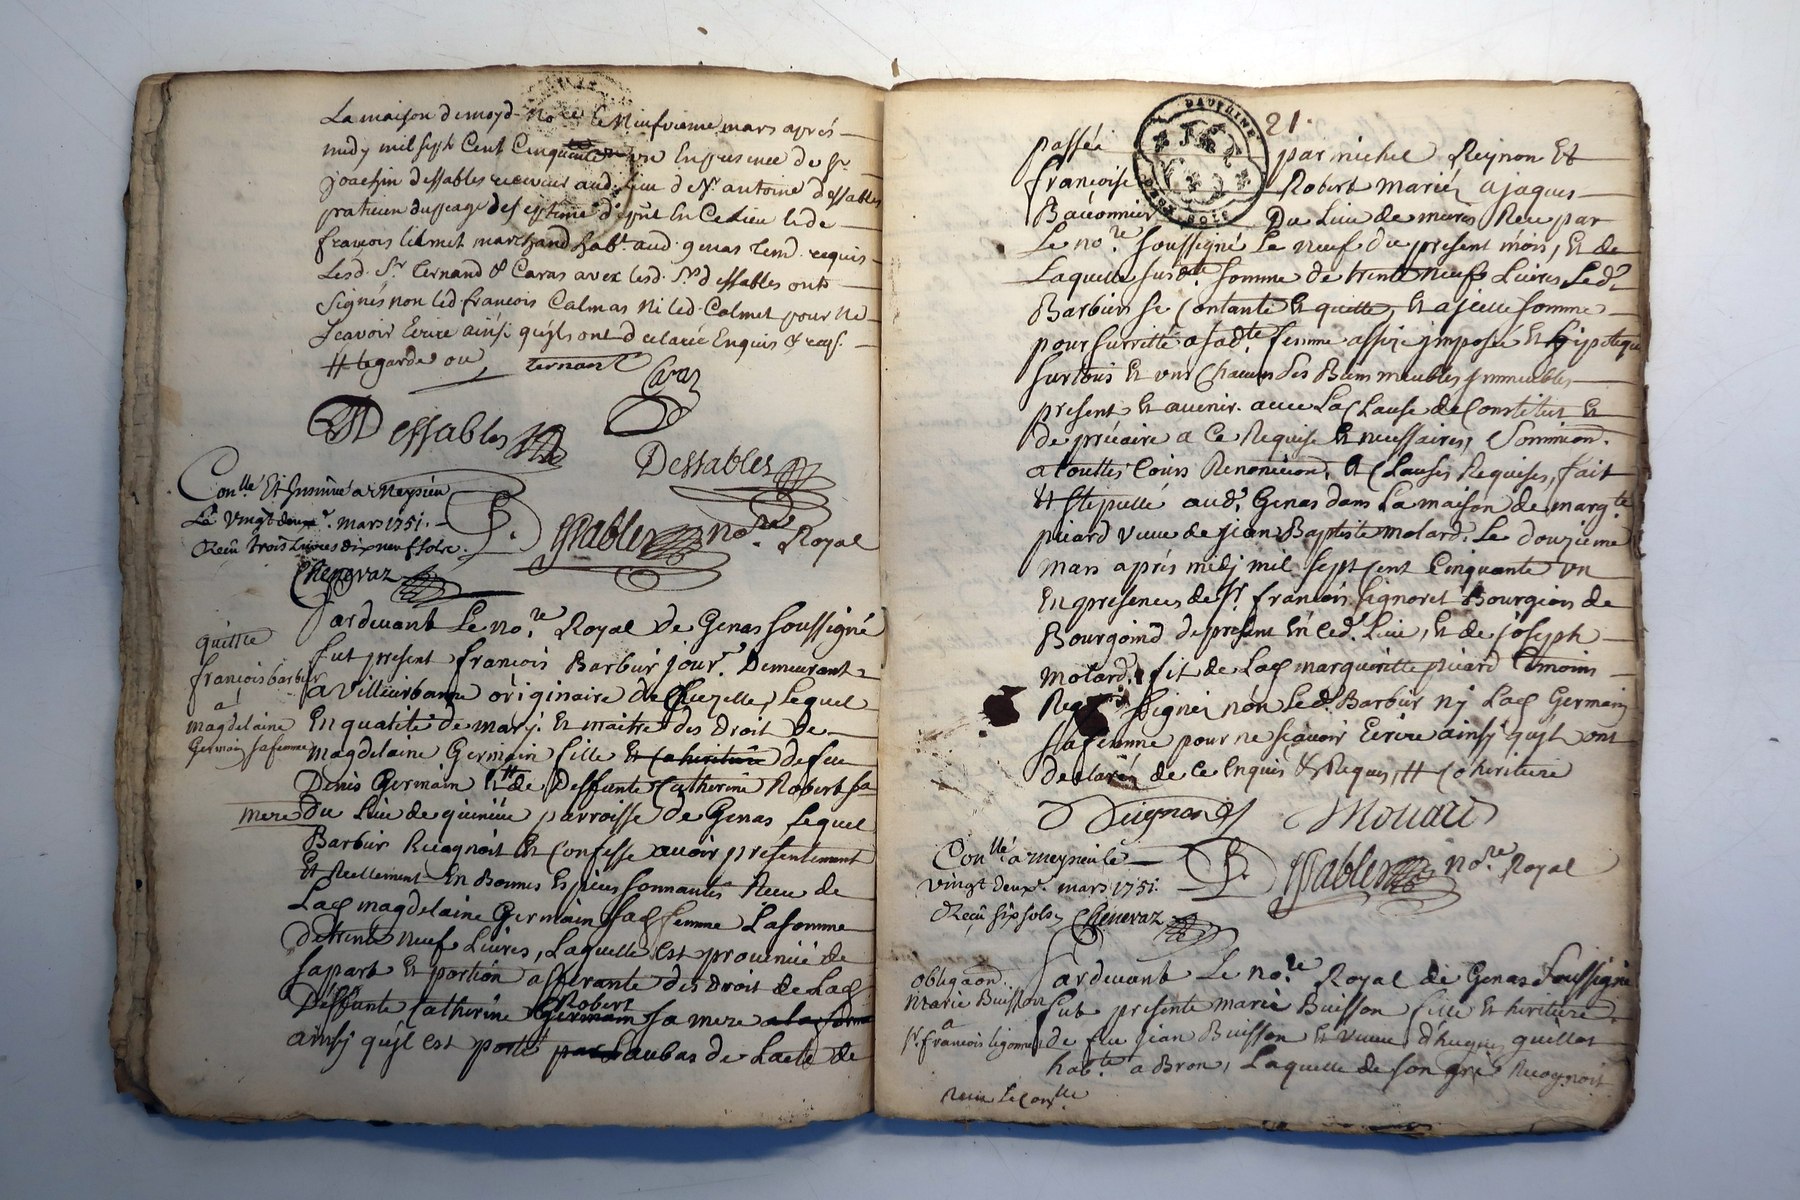 La maison de moyd. no.re le Neufvieme mars aprés
midy mil sept Cent Cinquante un En presence de sr
joachin dessables receveur aud. lieu de Sr. antoine dessables
praticien du
françois Calmet marchand hab.t aud. genas tem. requis
Lesd. Sr. Ternand & Caras avec lesd. Srs dessables onts
signés non led francois Calmas Ni led. Calmet pour Ne
scavoir Ecrire ainsi quils ont declaré Enquis & reqs.
# legarde ou ternant
Caraz
Dessables
Dessables
Con.lle Et Insinué a Meysieu
Le vingt deux.e mars 1751.
Reçu trois Livres dix neuf sols.
Chenevaz
Dessables no.re Royal
quittce
francois barbier
a
magdelaine
Germain sa femme
Pardevant Le no.re Royal de Genas soussigné
fut present francois Barbier jour.r Demeurant
a Villeurbanne originaire de Chezelle, Lequel
En qualité de mary. Et maitre des Droit de
magdelaine Germain fille Et Cohiritiere de feu
Denis Germain Et # de Deffunte Catherine Robert sa
mere du Lieu de quincieu parroisse de Genas, Lequel
Barbier Recognoit Et Confesse avoir presentement
Et Reellement En Bonnes Especes sonnantes Receu de
Lad magdelaine Germain sad femme La somme
de trente neuf Livres, Laquelle est provenüe de
sa part Et portion afferante des Droit de Lad
Deffunte Catherine Germain Robert sa mere a la forme
ainsy qu'jl est porté par Laubas de Lacte de
21.
DAUPHINE
DEUX SOLS
passée par michel Reynon Et
françoise Robert mariés a jaques
Baconnier Du Lieu de mures Receu par
Le no.re soussigné Le neuf du present mois, Et de
Laquelle susd.te somme de trente neuf Livres Led.
Barbier se Contante Et quitte, Et a jcelle somme
pour surretté a sad.te femme assize jmposée Et hipotequé
sur tous Et uns Chacun des Biens meubles jmmeubles
present Et avenir. avec La Clause de Constitut Et
de précaire a ce Requise Et necessaires, Soumission.
a touttes Cours Renonciaon. Et Clauses Requises, fait
Et Stepullé aud. Genas dans La maison de marg.te
picard veuve de jean Baptiste molard. Le douzieme
mars aprés midj mil sept Cent Cinquante un
En presences de Sr. francois Lignoret Bourgeois de
Bourgoind de present En led. Lieu, Et de joseph
molard. fit de Lad marguerittte picard temoins
Requis signés non Led. Barbier ny Lad Germain
sa femme pour ne sçavoir Ecrire ainsy quils ont
declarés de ce Enquis & Requis, # Cohiritiere
Molard
Con.llé a Meysieu le
vingt deux.e mars 1751.
Reçu six sols, Chenevaz
Dessables no.re Royal
obligaon.
Marie Buisson
a
Sr. francois ligonnet
Pardevant Le no.re Royal de Genas Soussigné
fut presente marie Buisson fille Et hiritiere
de feu jean Buisson Et veuve d'hugues quillot
hab.te a Bron, Laquelle de son gré Recognoit